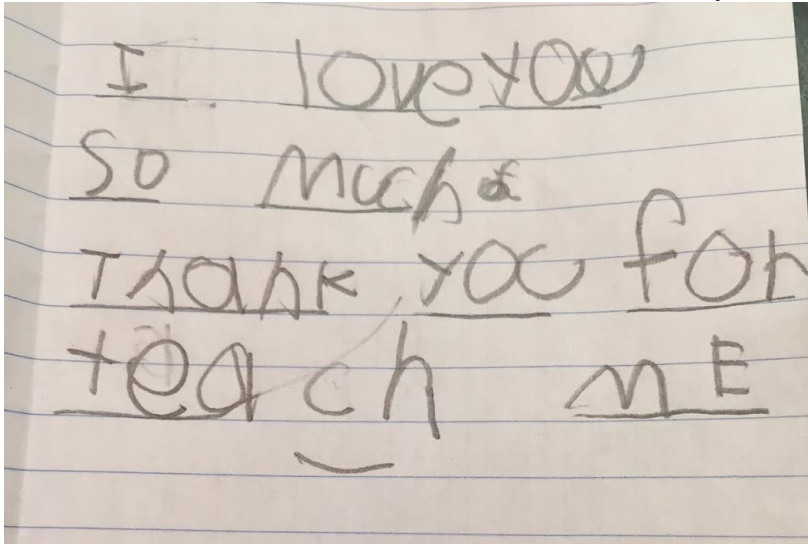 I love you
So Much
Thank you for
teach mE